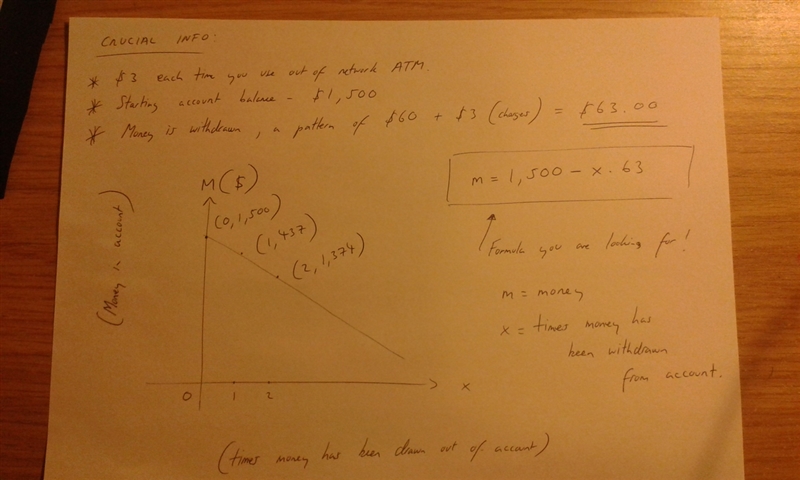 CRUCIAL INFO:
* $3 each time you use out of network ATM.
* Starting account balance - $1,500
* Money is withdrawn, a pattern of $60 + $3 (charges) = $63.00
m = 1,500 - x . 63
Formula you are looking for!
m = money
x = times money has
been withdrawn
from account.
M($)
(Money in account)
(0,1,500)
(1,437)
(2,1,374)
0 1 2 x
(times money has been drawn out of account)